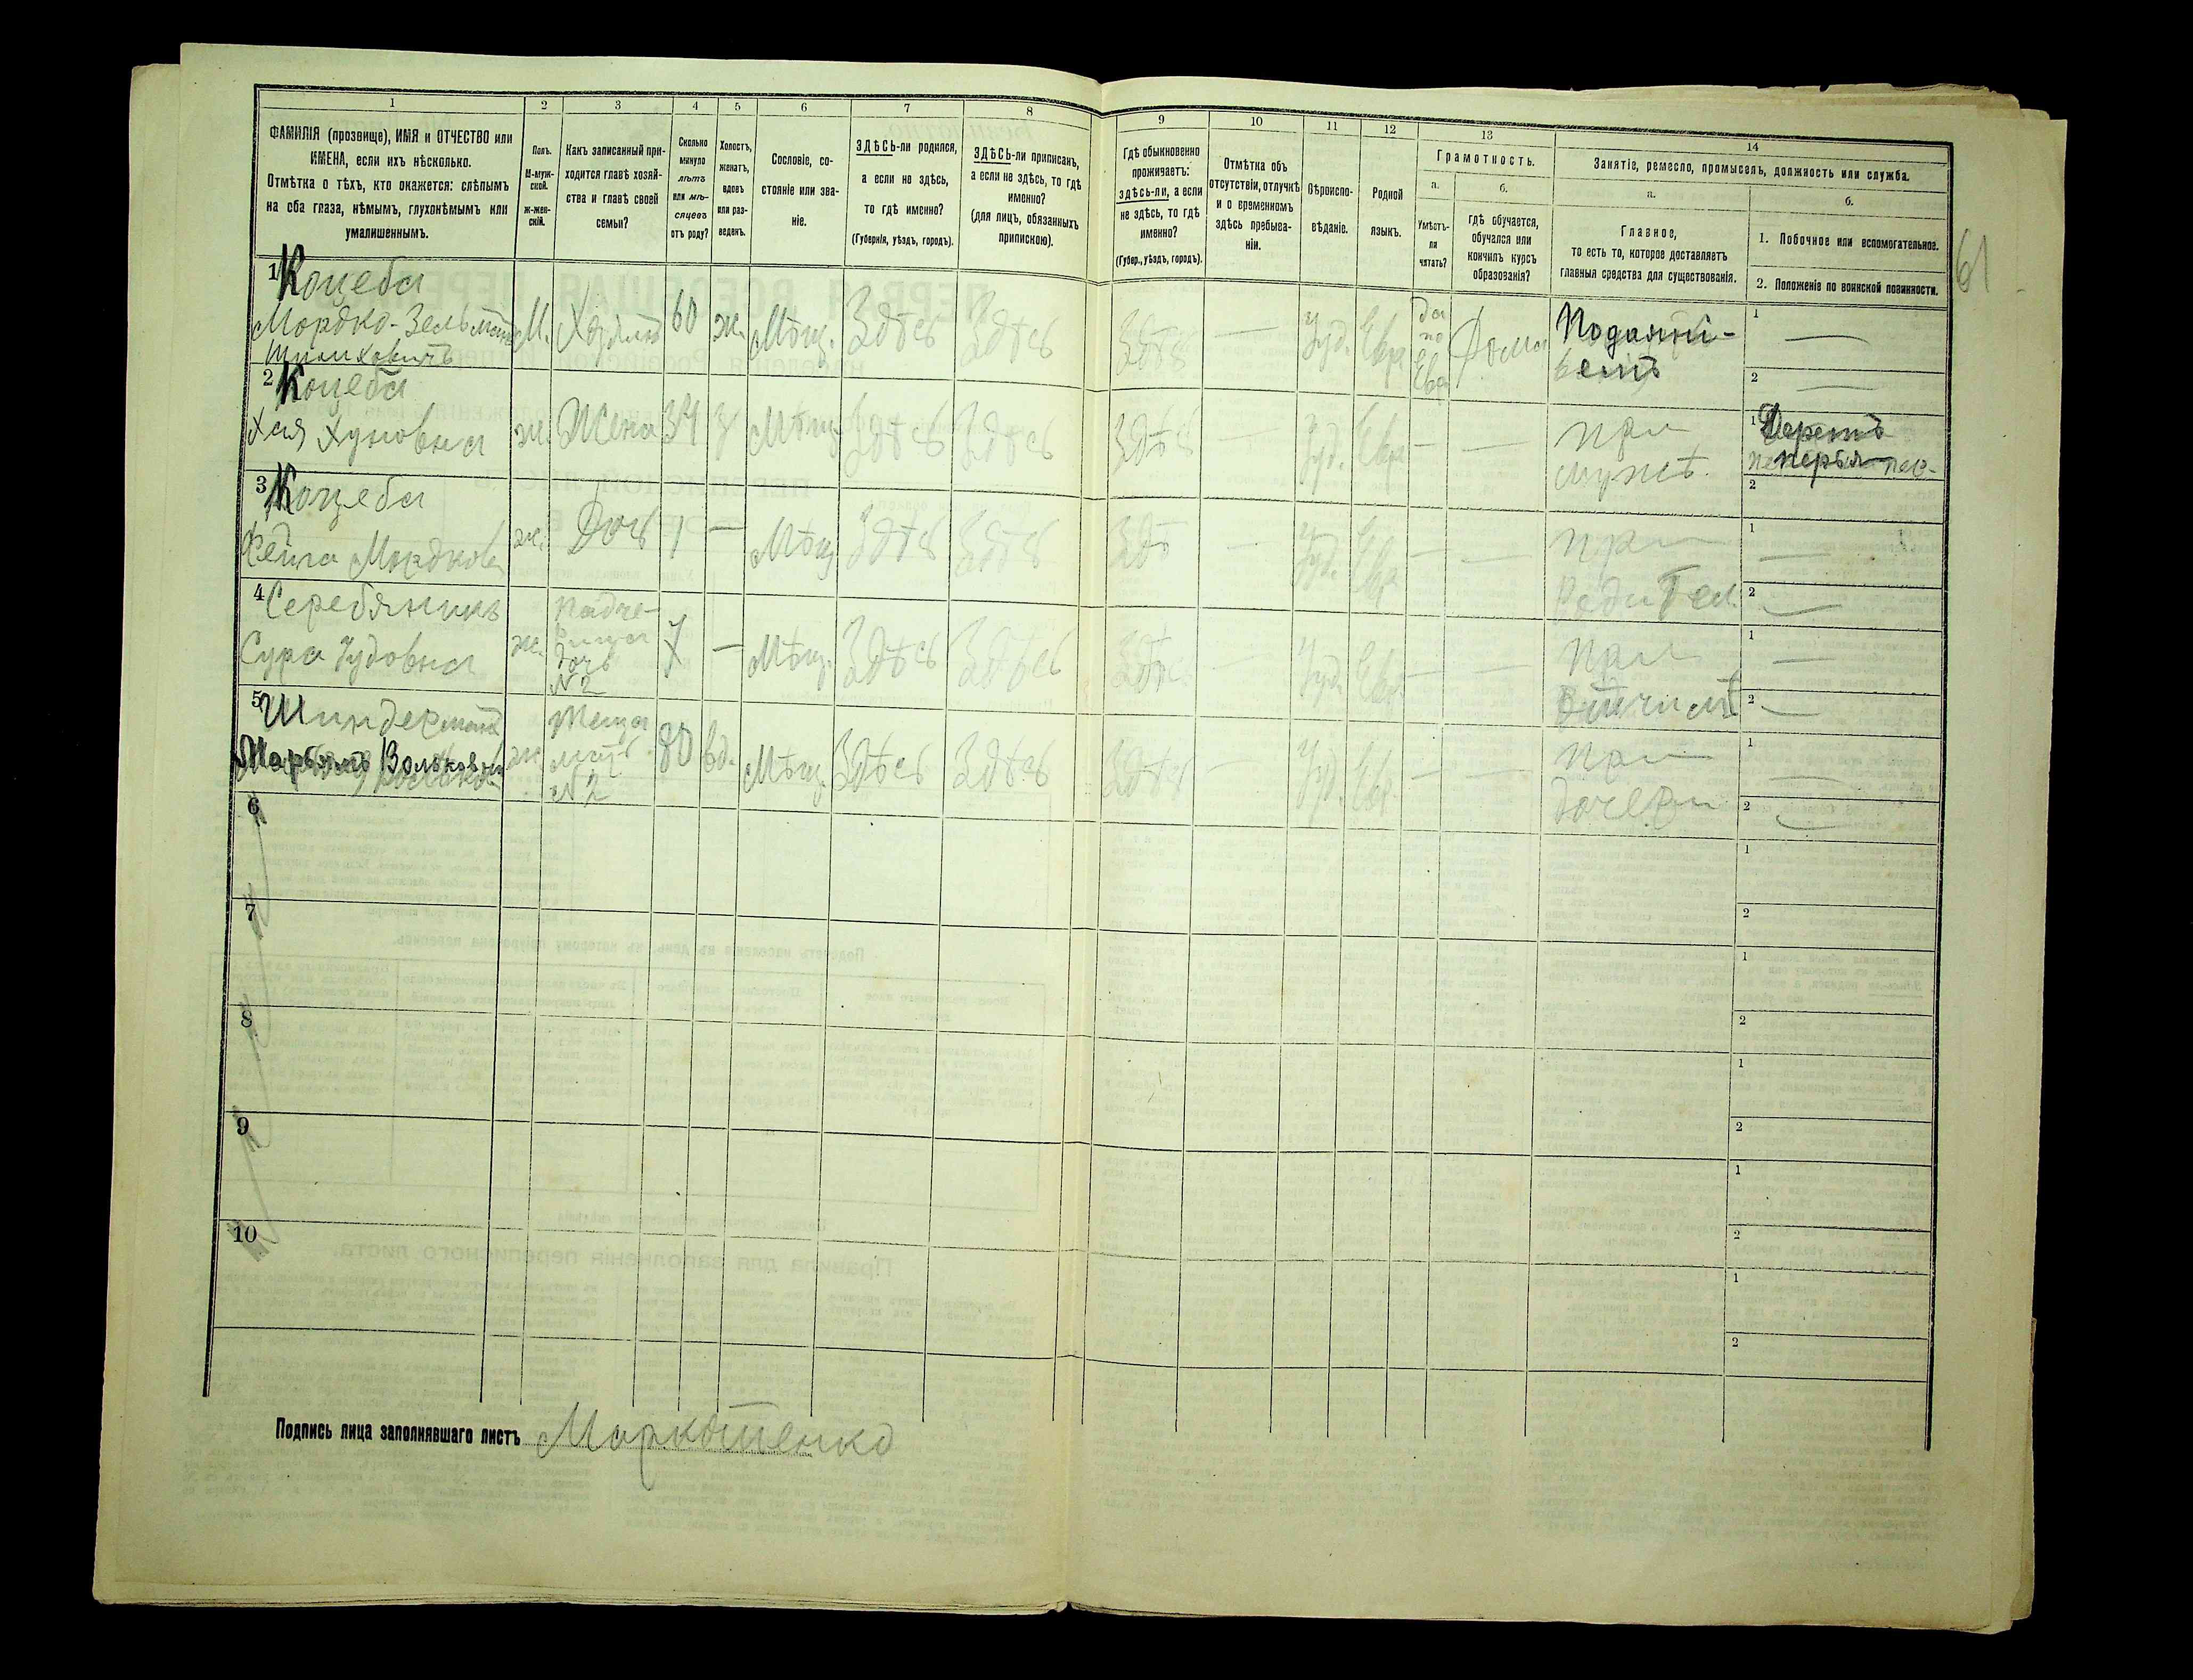 1
2
3
4
5
6
7
8
9
10
11
12
13
14
ФАМИЛІЯ (прозвище), ИМЯ и ОТЧЕСТВО или
ИМЕНА, если ихъ нѣсколько.
Отмѣтка о тѣхъ, кто окажется: слѣпымъ
на оба глаза, нѣмымъ, глухонѣмымъ или
умалишеннымъ.
Полъ.
М-муж-
ской.
Ж-жен-
скій.
Какъ записанный при-
ходится главѣ хозяй-
ства и главѣ своей
семьи?
Сколько
минуло
лѣтъ
или мѣ-
сяцевъ
отъ роду?
Холостъ,
женатъ,
вдовъ
или раз-
веденъ.
Сословіе, со-
стояніе или зва-
ніе.
ЗДѢСЬ-ли родился,
а если не здѣсь,
то гдѣ именно?
(Губернія, уѣздъ, городъ).
ЗДѢСЬ-ли приписанъ,
а если не здѣсь, то гдѣ
именно?
(для лицъ, обязанныхъ
припискою).
Гдѣ обыкновенно
проживаетъ:
здѣсь-ли, а если
не здѣсь, то гдѣ
именно?
(Губер., уѣздъ, городъ).
Отмѣтка объ
отсутствіи, отлучкѣ
и о временномъ
здѣсь пребыва-
ніи.
Вѣроиспо-
вѣданіе.
Родной
языкъ.
Грамотность.
а.
Умѣетъ-
ли
читать?
б.
гдѣ обучается,
обучался или
кончилъ курсъ
образованія?
Занятіе, ремесло, промыселъ, должность или служба.
а.
Главное,
то есть то, которое доставляетъ
главныя средства для существованія.
б.
1. Побочное или вспомогательное.
2. Положеніе по воинской повинности.
61
1 Коцеба
Мордко-Зельманъ
Шлиомковичъ
М. Хозяинъ 60 ж. Мѣщ. Здѣсь Здѣсь Здѣсь — Іуд. Евр. да по Евр. Дома
1 —
2 —
2 Коцеба
Хая Хуновна ж. Жена 34 з Мѣщ. Здѣсь Здѣсь Здѣсь — Іуд. Евр. — — при
мужѣ.
1 Деретъ
перья
2
3 Коцеба
Фейга Мордков. ж. Дочь 1 — Мѣщ. Здѣсь Здѣсь Здѣ — Іуд. Евр. — — при
Родител.
1 —
2 —
4 Серебяникъ
Сура Іудовна ж. Падче-
рица
дочь
№2
7 — Мѣщ. Здѣсь Здѣсь Здѣс. — Іуд. Евр. — — при
Вотчимѣ
1 —
2 —
5 Шиндерманъ
Марьямъ Вольковна ж. Теща
мать
№2
80 вд. Мѣщ. Здѣсь Здѣсь Здѣсь — Іуд. Евр. — — при
дочери
1 —
2 —
6
1
2
7
1
2
8
1
2
9
1
2
10
1
2
Подпись лица заполнявшаго листъ Маркотенко